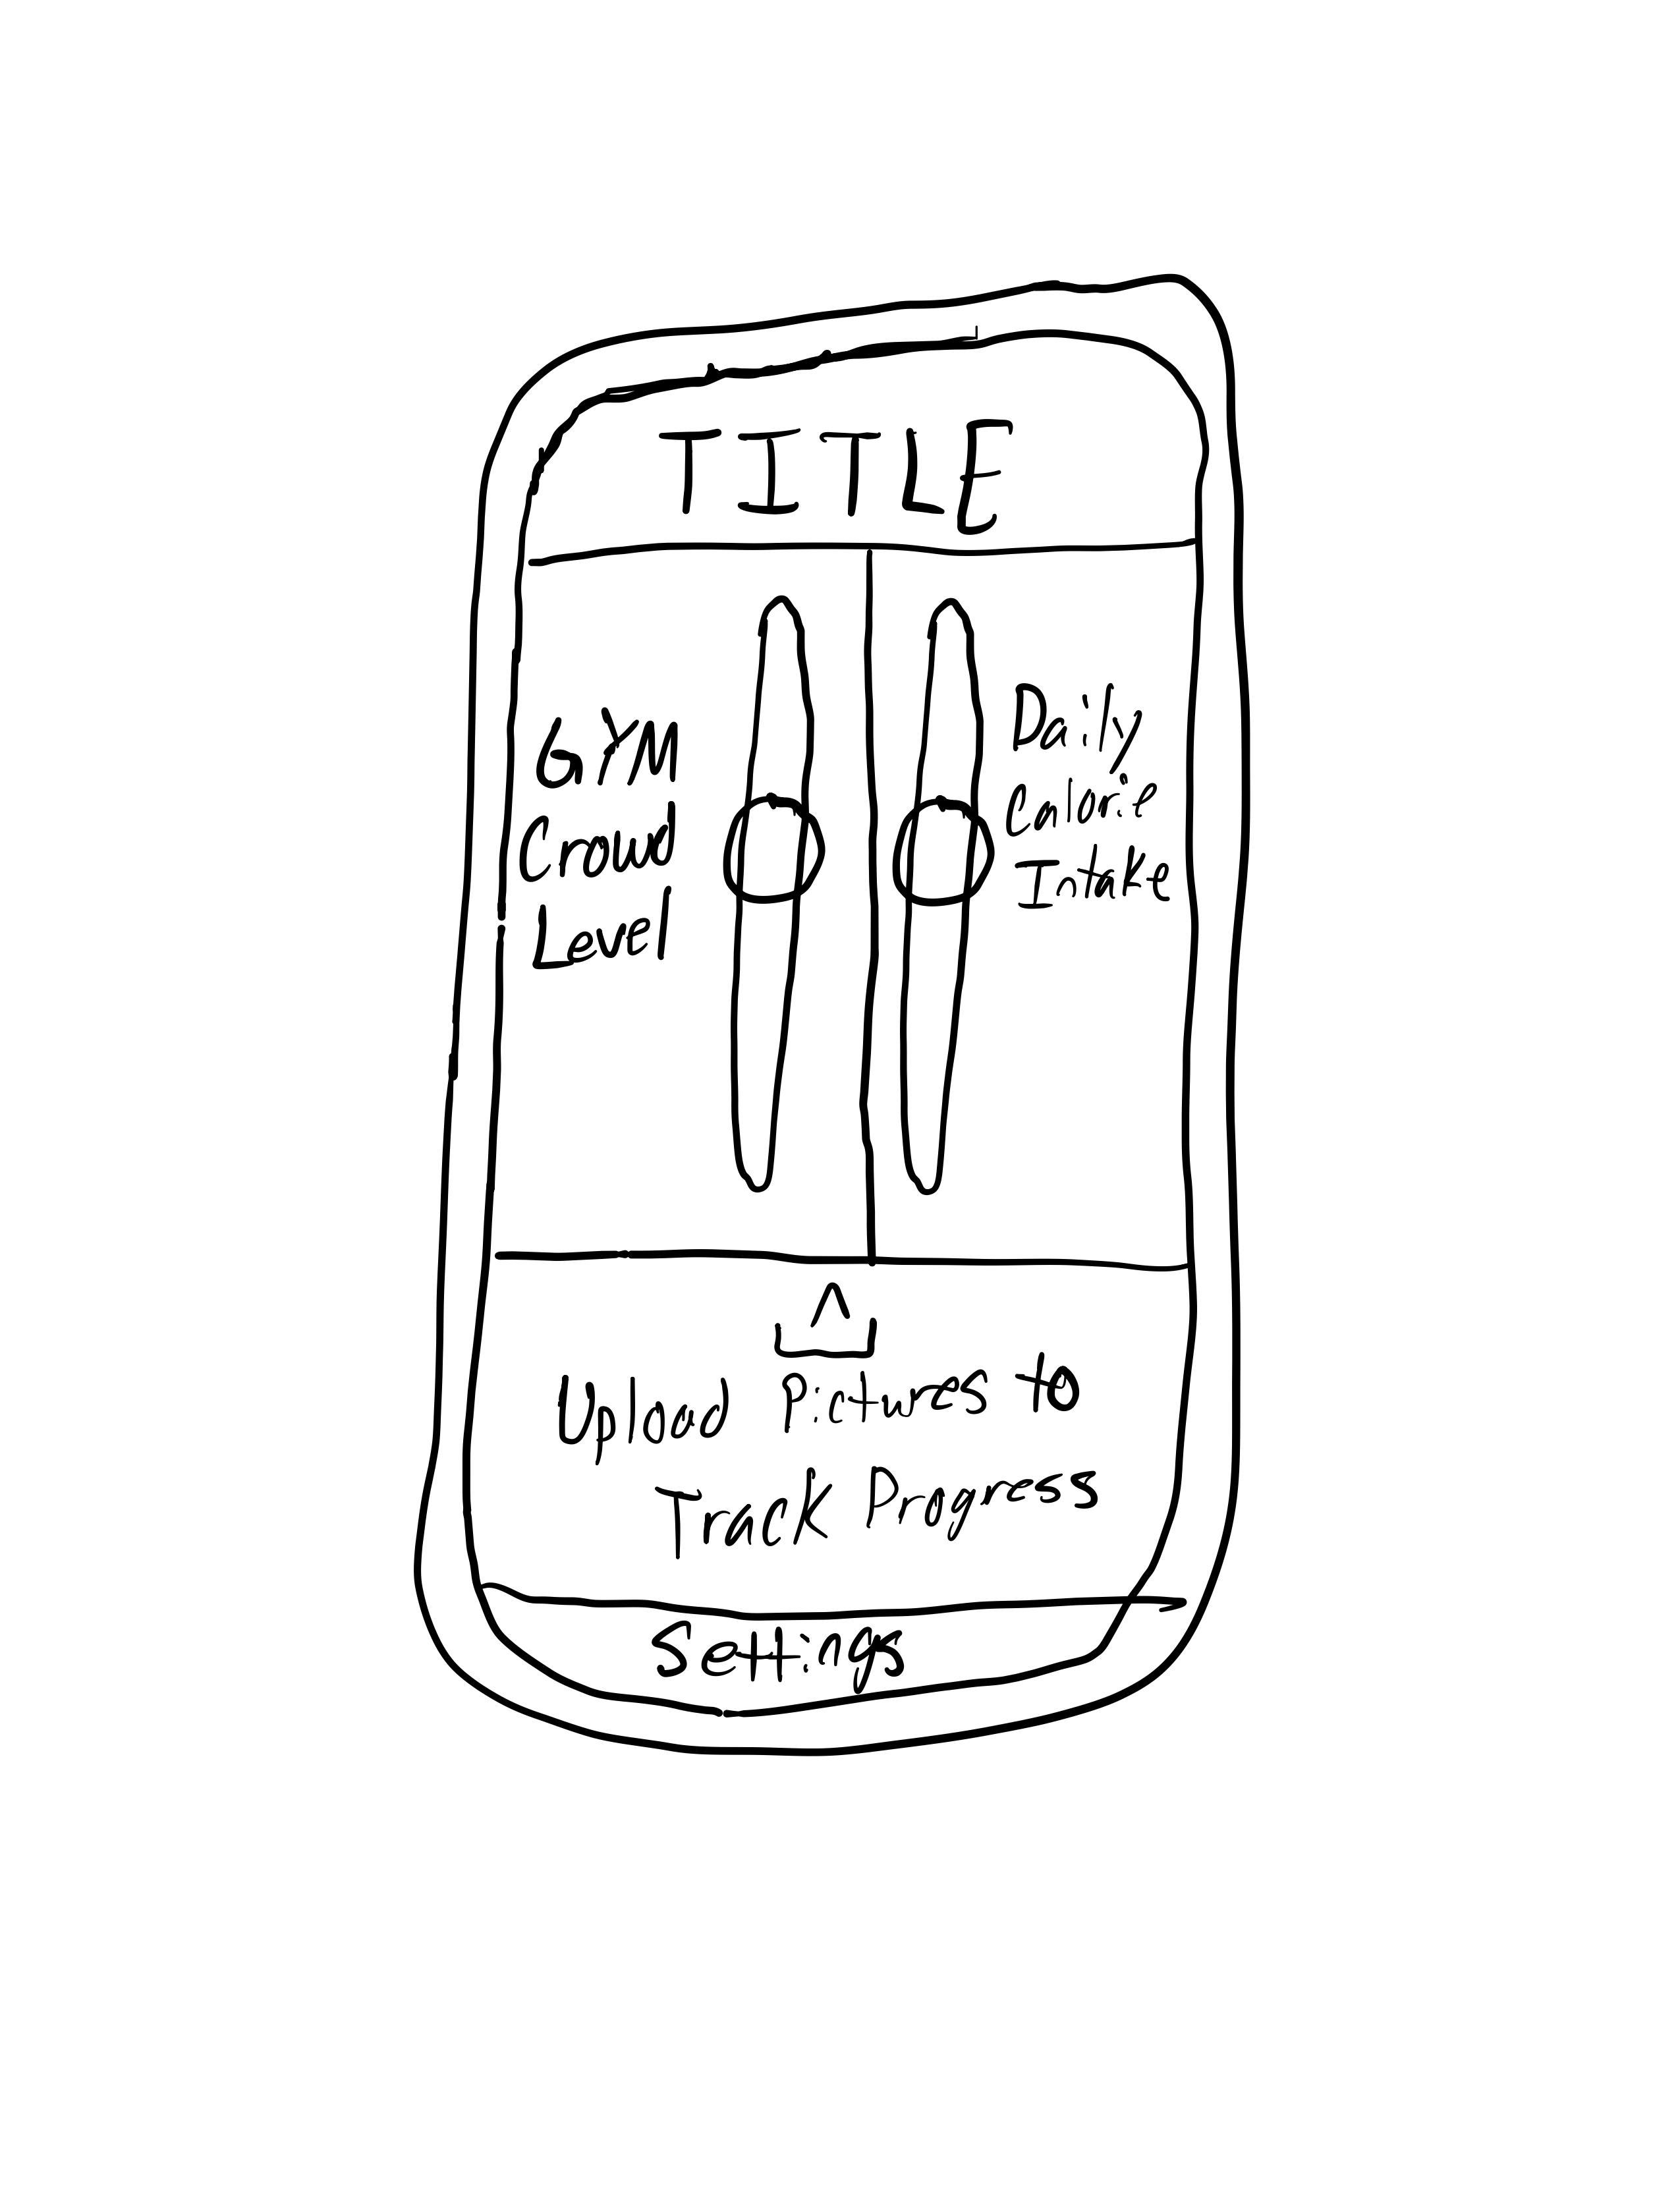 TITLE
GYM
Crowd
Level
Daily
Calorie
Intake
Upload Pictures to
Track Progress
Settings